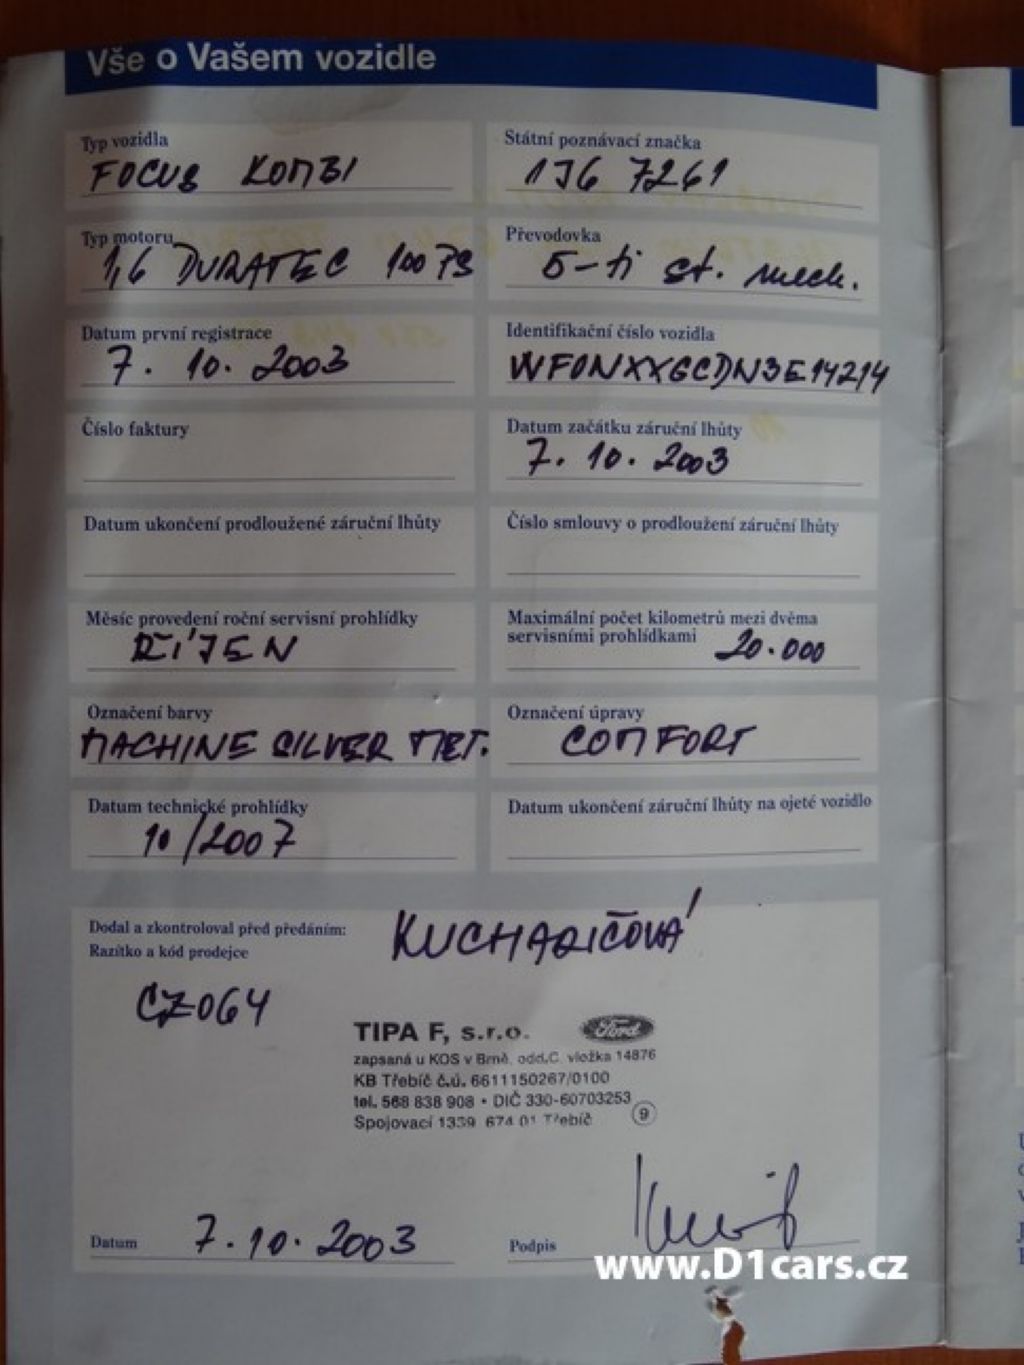 Vše o Vašem vozidle
Typ vozidla
FOCUS KOMBI
Státní poznávací značka
1J6 7261
Typ motoru
1,6 DURATEC 100 PS
Převodovka
5-ti st. mech.
Datum první registrace
7. 10. 2003
Identifikační číslo vozidla
WF0NXXGCDN3E14214
Číslo faktury
Datum začátku záruční lhůty
7. 10. 2003
Datum ukončení prodloužené záruční lhůty
Číslo smlouvy o prodloužení záruční lhůty
Měsíc provedení roční servisní prohlídky
ŘÍJEN
Maximální počet kilometrů mezi dvěma
servisními prohlídkami
20.000
Označení barvy
MACHINE SILVER MET.
Označení úpravy
COMFORT
Datum technické prohlídky
10/2007
Datum ukončení záruční lhůty na ojeté vozidlo
Dodal a zkontroloval před předáním:
KUCHARIČOVÁ
Razítko a kód prodejce
CZ064
TIPA F, s.r.o.
Ford
zapsaná u KOS v Brně, odd.C, vložka 14876
KB Třebíč č.ú. 6611150267/0100
tel. 568 838 908 • DIČ 330-60703253
Spojovací 1339 674 01 Třebíč
9
Datum
7. 10. 2003
Podpis
www.D1cars.cz